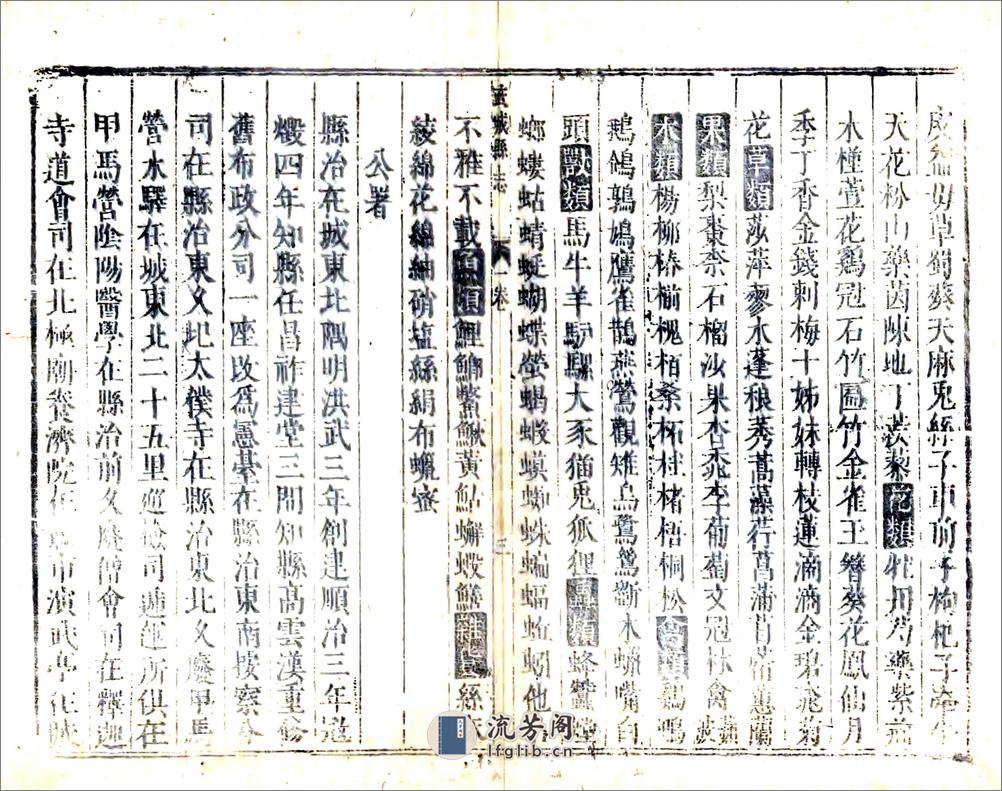 益母草蜀葵天麻兎絲子車前子枸杞子牽牛
天花粉山藥茵陳地丁蒺藜花類牡丹芍藥紫荊
木槿萱花鷄冠石竹匾竹金雀玉簪葵花鳳仙月
季丁香金錢刺梅十姊妹轉枝蓮滴滴金碧桃菊
花草類莎萍蓼水蓬稂莠蒿藻荇菖蒲苜蓿蕙蘭
果類梨棗柰石榴沙果杏桃李葡萄文冠林禽
木類楊柳椿榆槐栢桑柘桂楮梧桐松禽類鷄鴨
鵝鴿鶉鳩鷹雀鵲燕鶯鸛雉烏鷺鴛斵木蠟嘴白
頭獸類馬牛羊驴騾犬豕猫兎狐狸蟲類蜂蠶螳
螂螻蛄蜻蜓蝴蝶螢蝸蝦蟆蜘蛛蝙蝠蚯蚓他
不雅不載魚類鯉鯿鱉鰍黃鮎蠏蝦鱔雜貨絲
綾綿花綿紬硝鹽絲絹布蠟蜜
公署
縣治在城東北隅明洪武三年創建順治三年寇
燬四年知縣任昌祚建堂三間知縣高雲漢重脩
舊布政分司一座改爲憲臺在縣治東南按察分
司在縣治東久圮太僕寺在縣治東北久廢甲馬
營水驛在城東北二十五里巡檢司遞運所俱在
甲馬營陰陽醫學在縣治前久廢僧會司在釋迦
寺道會司在北極廟養濟院在市演武亭在城
縣志
卷一
三
流芳阁
lfglib.cn